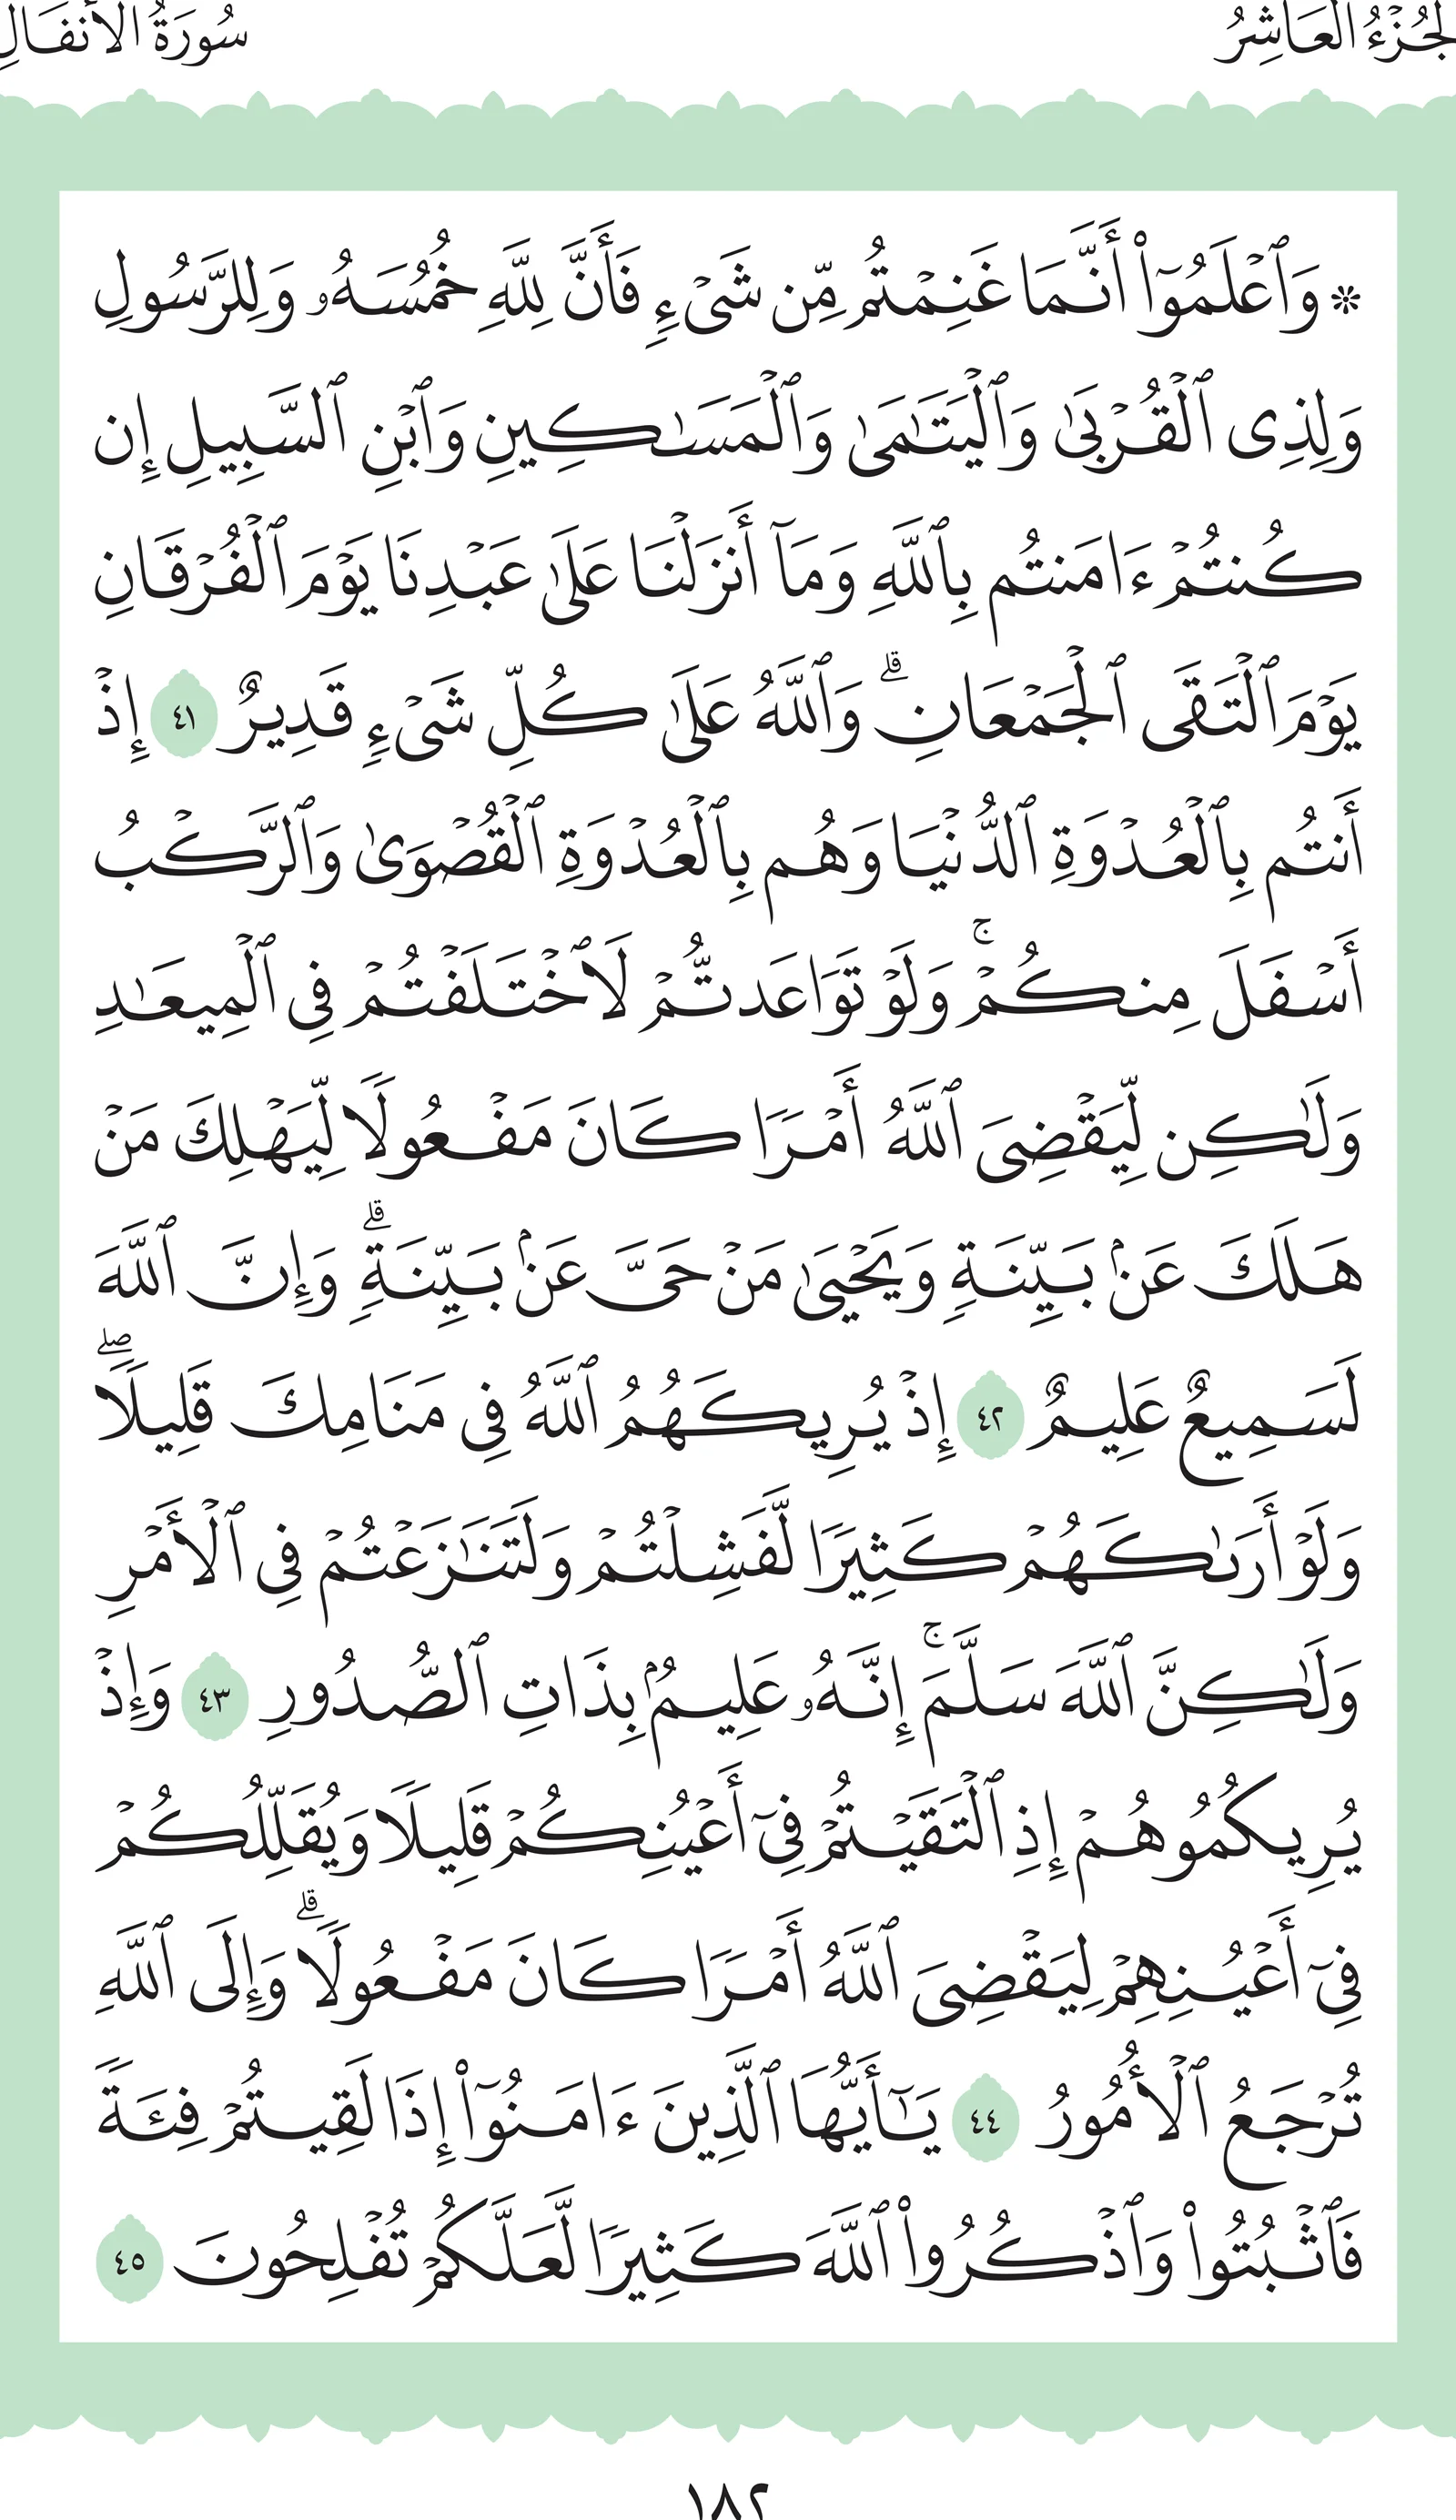 الجُزْءُ العَاشِرُ
سُورَةُ الأَنفَالِ
۞ وَٱعْلَمُوٓا۟ أَنَّمَا غَنِمْتُم مِّن شَىْءٍ فَأَنَّ لِلَّهِ خُمُسَهُۥ وَلِلرَّسُولِ
وَلِذِى ٱلْقُرْبَىٰ وَٱلْيَتَـٰمَىٰ وَٱلْمَسَـٰكِينِ وَٱبْنِ ٱلسَّبِيلِ إِن
كُنتُمْ ءَامَنتُم بِٱللَّهِ وَمَآ أَنزَلْنَا عَلَىٰ عَبْدِنَا يَوْمَ ٱلْفُرْقَانِ
يَوْمَ ٱلْتَقَى ٱلْجَمْعَانِ ۗ وَٱللَّهُ عَلَىٰ كُلِّ شَىْءٍ قَدِيرٌ ٤١ إِذْ
أَنتُم بِٱلْعُدْوَةِ ٱلدُّنْيَا وَهُم بِٱلْعُدْوَةِ ٱلْقُصْوَىٰ وَٱلرَّكْبُ
أَسْفَلَ مِنكُمْ ۚ وَلَوْ تَوَاعَدتُّمْ لَٱخْتَلَفْتُمْ فِى ٱلْمِيعَـٰدِ
وَلَـٰكِن لِّيَقْضِىَ ٱللَّهُ أَمْرًا كَانَ مَفْعُولًا لِّيَهْلِكَ مَنْ
هَلَكَ عَنۢ بَيِّنَةٍ وَيَحْيَىٰ مَنْ حَىَّ عَنۢ بَيِّنَةٍ ۗ وَإِنَّ ٱللَّهَ
لَسَمِيعٌ عَلِيمٌ ٤٢ إِذْ يُرِيكَهُمُ ٱللَّهُ فِى مَنَامِكَ قَلِيلًا ۖ
وَلَوْ أَرَىٰكَهُمْ كَثِيرًا لَّفَشِلْتُمْ وَلَتَنَـٰزَعْتُمْ فِى ٱلْأَمْرِ
وَلَـٰكِنَّ ٱللَّهَ سَلَّمَ ۚ إِنَّهُۥ عَلِيمٌۢ بِذَاتِ ٱلصُّدُورِ ٤٣ وَإِذْ
يُرِيكُمُوهُمْ إِذِ ٱلْتَقَيْتُمْ فِىٓ أَعْيُنِكُمْ قَلِيلًا وَيُقَلِّلُكُمْ
فِىٓ أَعْيُنِهِمْ لِيَقْضِىَ ٱللَّهُ أَمْرًا كَانَ مَفْعُولًا ۗ وَإِلَى ٱللَّهِ
تُرْجَعُ ٱلْأُمُورُ ٤٤ يَـٰٓأَيُّهَا ٱلَّذِينَ ءَامَنُوٓا۟ إِذَا لَقِيتُمْ فِئَةً
فَٱثْبُتُوا۟ وَٱذْكُرُوا۟ ٱللَّهَ كَثِيرًا لَّعَلَّكُمْ تُفْلِحُونَ ٤٥
١٨٢